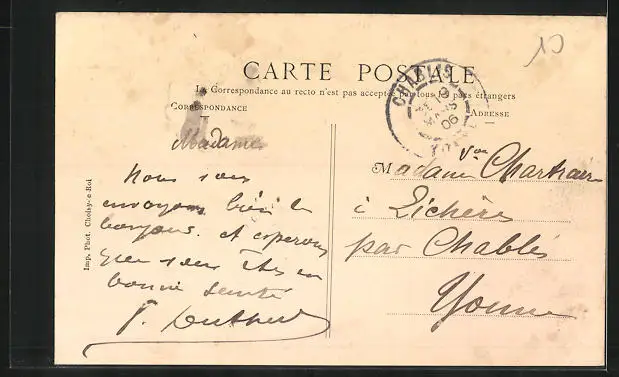 CARTE POSTALE
La Correspondance au recto n'est pas acceptée par tous les pays étrangers
CORRESPONDANCE
ADRESSE
CHABLIS
06
Madame
Nous vous
envoyons bien le
bonjour. et esperons
que vous êtes en
bonne santé
Madame Vve
à Lichères
par Chablis
Yonne
Imp. Phot. Choisy-le-Roi